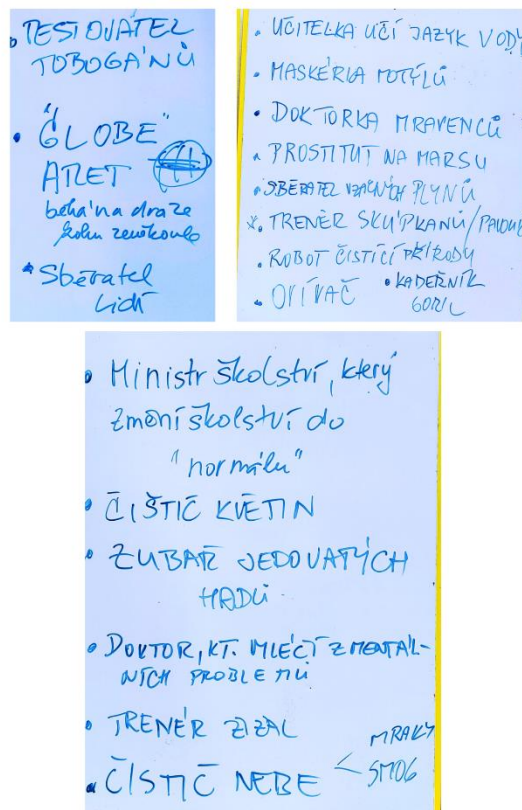 • TESTOVATEL
TOBOGÁNŮ
• "GLOBE"
ATLET
běhá na dráze
kolem zeměkoule
• Sběratel
lidí
• UČITELKA UČÍ JAZYK VODY
• MASKÉRKA MOTÝLŮ
• DOKTORKA MRAVENCŮ
• PROSTITUT NA MARSU
• SBĚRATEL VZÁCNÝCH PLYNŮ
• TRENÉR SKLÍPKANŮ/PAVOUK
• ROBOT ČISTÍCÍ PŘÍRODY
• • KADEŘNÍK
GORIL
• Ministr školství, který
změní školství do
"normálu"
• ČISTIČ KVĚTIN
• ZUBAŘ JEDOVATÝCH
HADŮ
• DOKTOR, KT. MLÉČÍ Z MENTÁL-
NÍCH PROBLEMŮ
• TRENÉR ŽÍŽAL
• ČISTIČ NEBE < MRAKY
SMOG